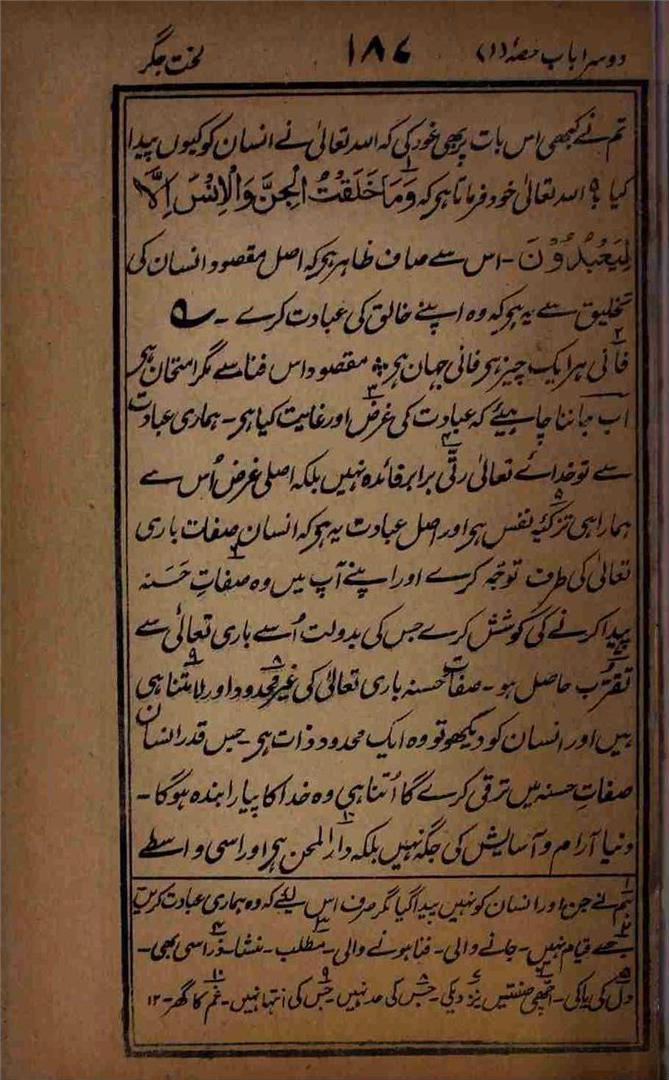 دوسرا باب حصہ (۱) ۱۸۷ لخت جگر
تم نے کبھی اس بات پر بھی غور کی کہ اللہ تعالیٰ نے انسان کو کیوں پیدا
کیا ہے؟ اللہ تعالیٰ خود فرماتا ہے کہ وَمَا خَلَقْتُ الْجِنَّ وَالْاِنْسَ اِلَّا
لِیَعْبُدُوْنَ ۔ اس سے صاف ظاہر ہے کہ اصل مقصود انسان کی
تخلیق سے یہ ہے کہ وہ اپنے خالق کی عبادت کرے ۔
فانی ہر ایک چیز ہے فانی جہان ہے ؞ مقصود اس فنا سے مگر امتحان ہے
اب جاننا چاہیئے کہ عبادت کی غرض اور غایت کیا ہے ۔ ہماری عبادت
سے تو خدائے تعالیٰ رتی برابر فائدہ نہیں بلکہ اصلی غرض اُس سے
ہمارا ہی تزکیۂ نفس ہے اور اصل عبادت یہ ہے کہ انسان صفات باری
تعالیٰ کی طرف توجہ کرے اور اپنے آپ میں وہ صفاتِ حَسَنہ
پیدا کرنے کی کوشش کرے جس کی بدولت اُسے باری تعالیٰ سے
تقرّب حاصل ہو ۔ صفات حسنہ باری تعالیٰ کی غیر محدود اور لامتناہی
ہیں اور انسان کو دیکھو تو وہ ایک محدود ذات ہے ۔ جس قدر انسان
صفاتِ حسنہ میں ترقی کرے گا اُتنا ہی وہ خدا کا پیارا بندہ ہوگا ۔
دنیا آرام و آسایش کی جگہ نہیں بلکہ دارُ المحن ہے اور اسی واسطے
۱ ہم نے جن اور انسان کو نہیں پیدا کیا مگر صرف اس لیئے کہ وہ ہماری عبادت کریں
۲ جسے قیام نہیں ۔ جانے والی ۔ فنا ہونے والی ۔ ۳ مطلب ۔ منشا ۔ ۴ ذراسی بھی ۔
۵ دل کی پاکی ۔ ۶ اچھی صفتیں ۷ نزدیکی ۔ ۸ جس کی حد نہیں ۔ ۹ جس کی انتہا نہیں ۔ ۱۰ غم کا گھر ۔ ۱۲